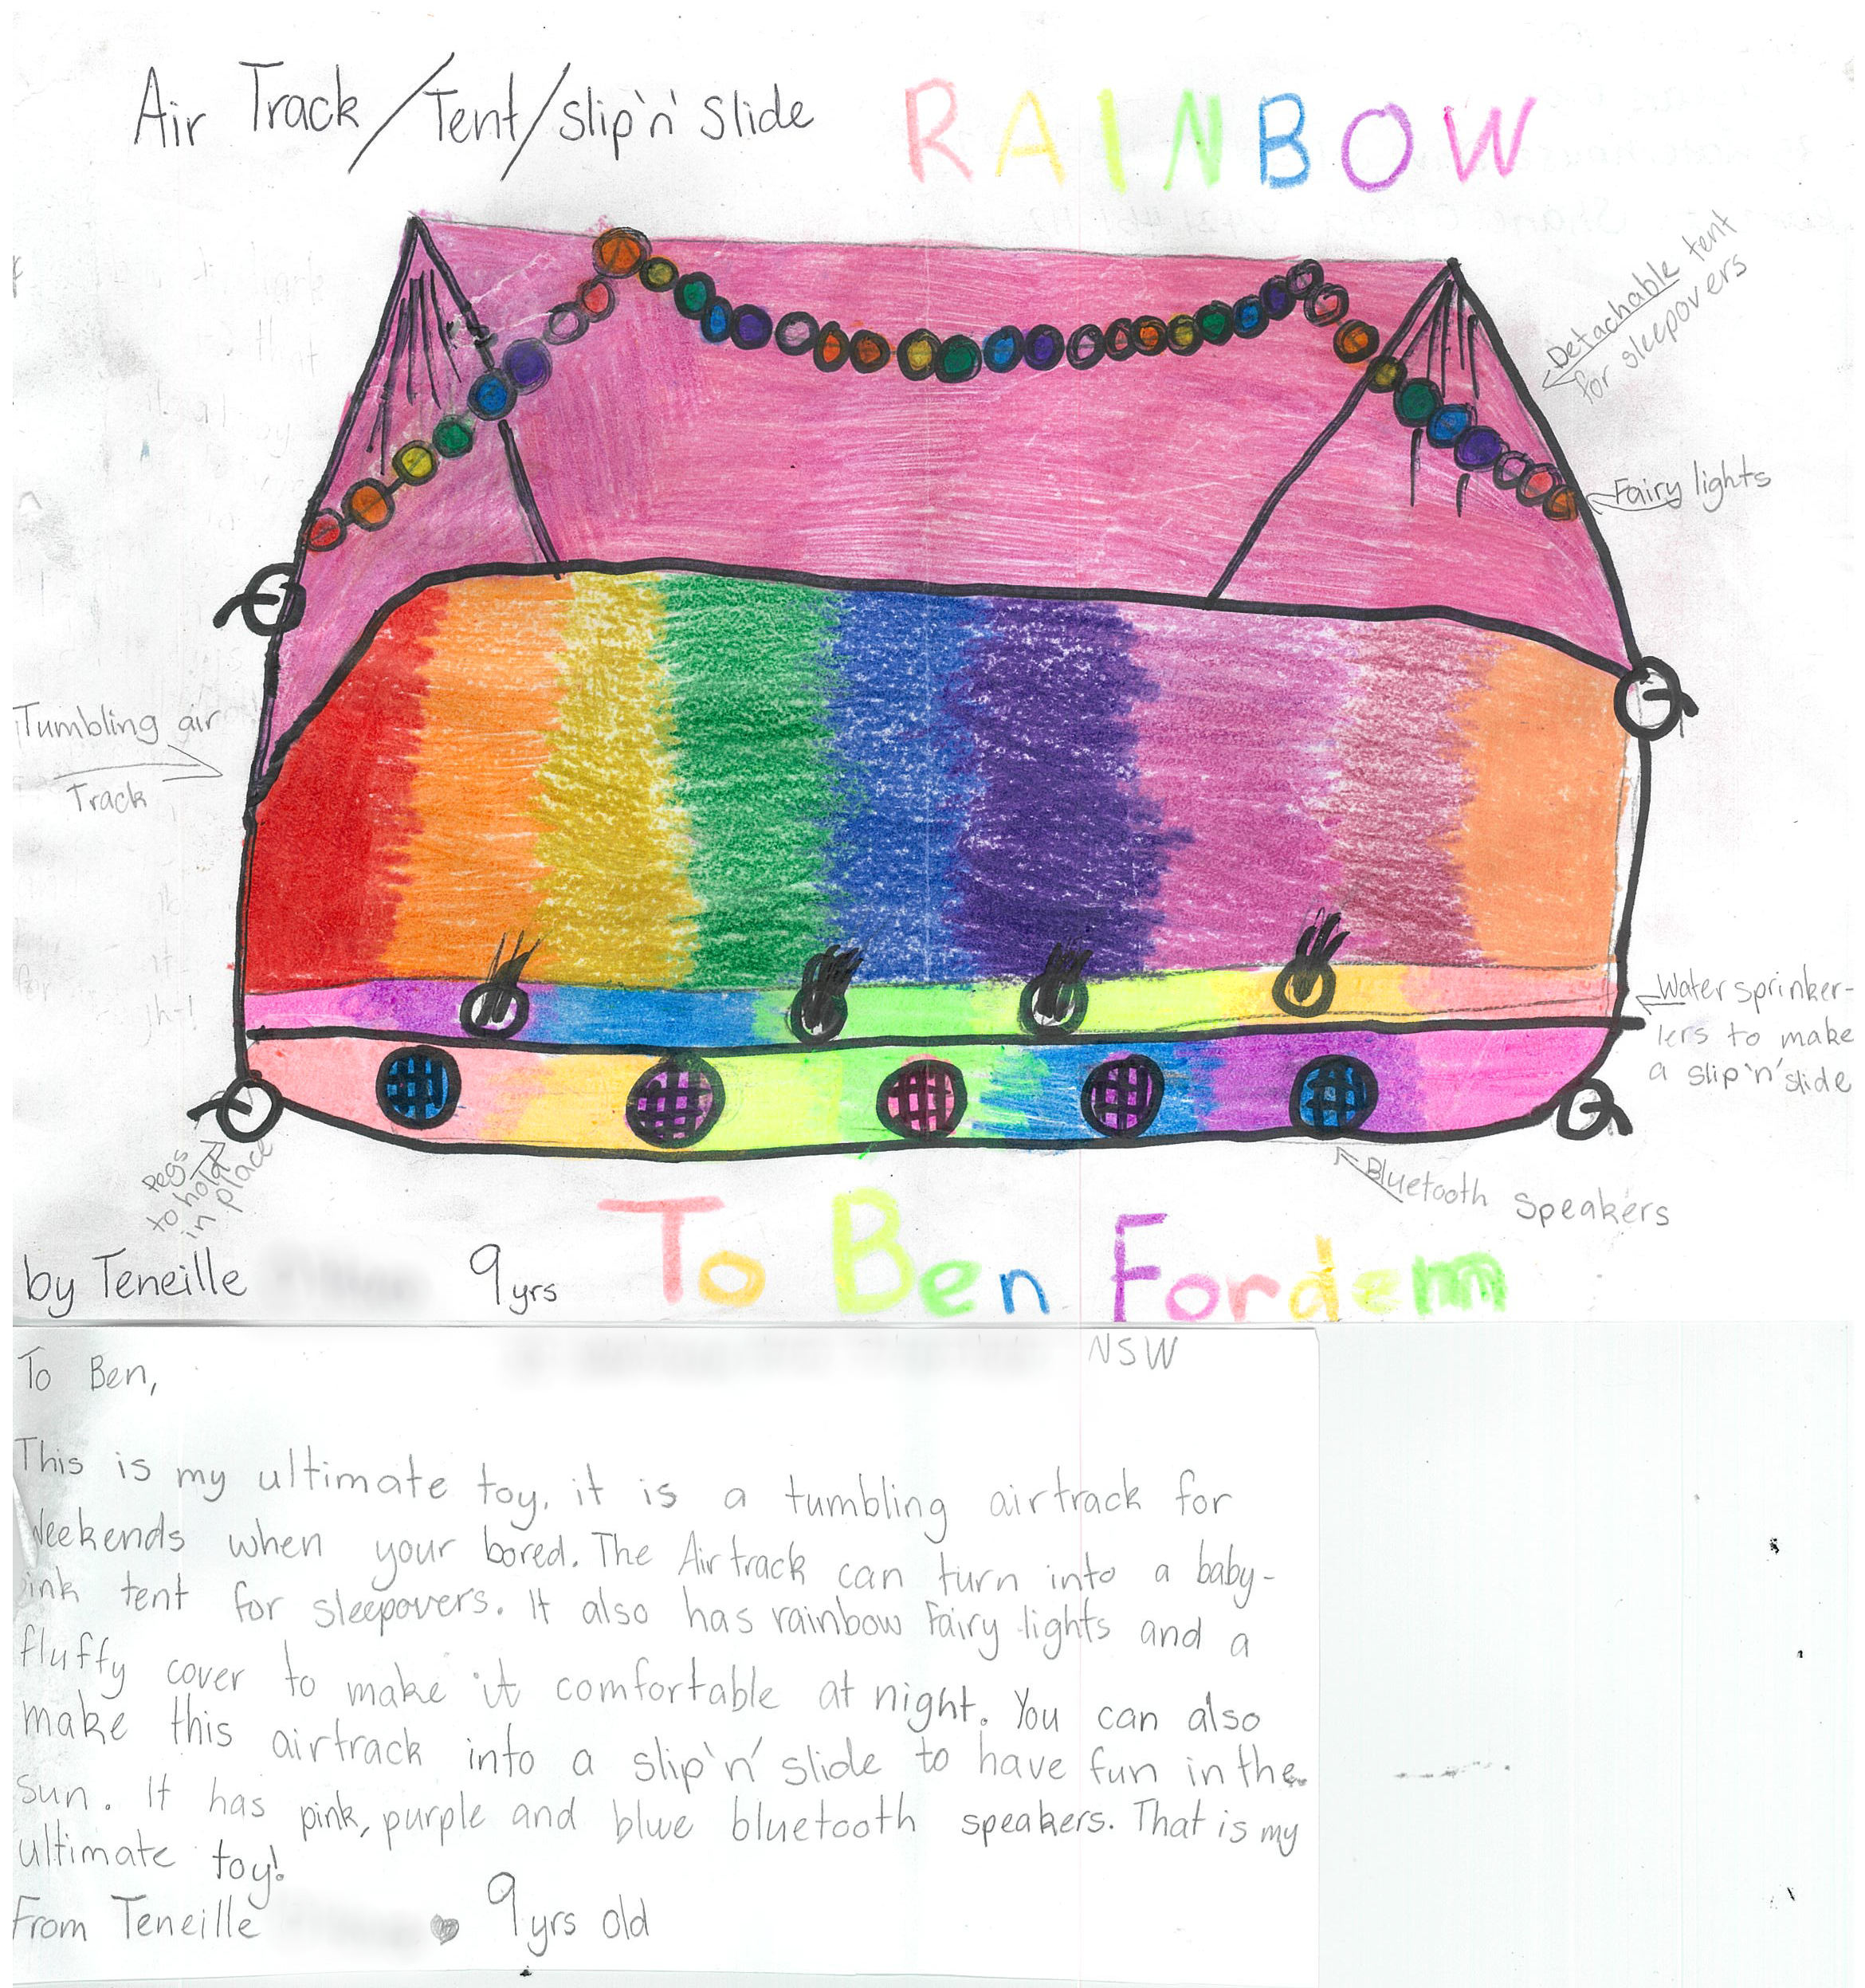 Air Track/Tent/slip'n' Slide RAINBOW
Detachable tent
for sleepovers
Fairy lights
Tumbling air
Track
Water sprinker-
lers to make
a slip'n'slide
Pegs
to hold
in place
Bluetooth Speakers
by Teneille 9yrs
To Ben Fordem
NSW
To Ben,
This is my ultimate toy, it is a tumbling airtrack for
Weekends when your bored. The Air track can turn into a baby-
pink tent for sleepovers. It also has rainbow Fairy lights and a
fluffy cover to make it comfortable at night. You can also
make this airtrack into a slip'n' slide to have fun in the
sun. It has pink, purple and blue bluetooth speakers. That is my
ultimate toy!
From Teneille 9yrs old